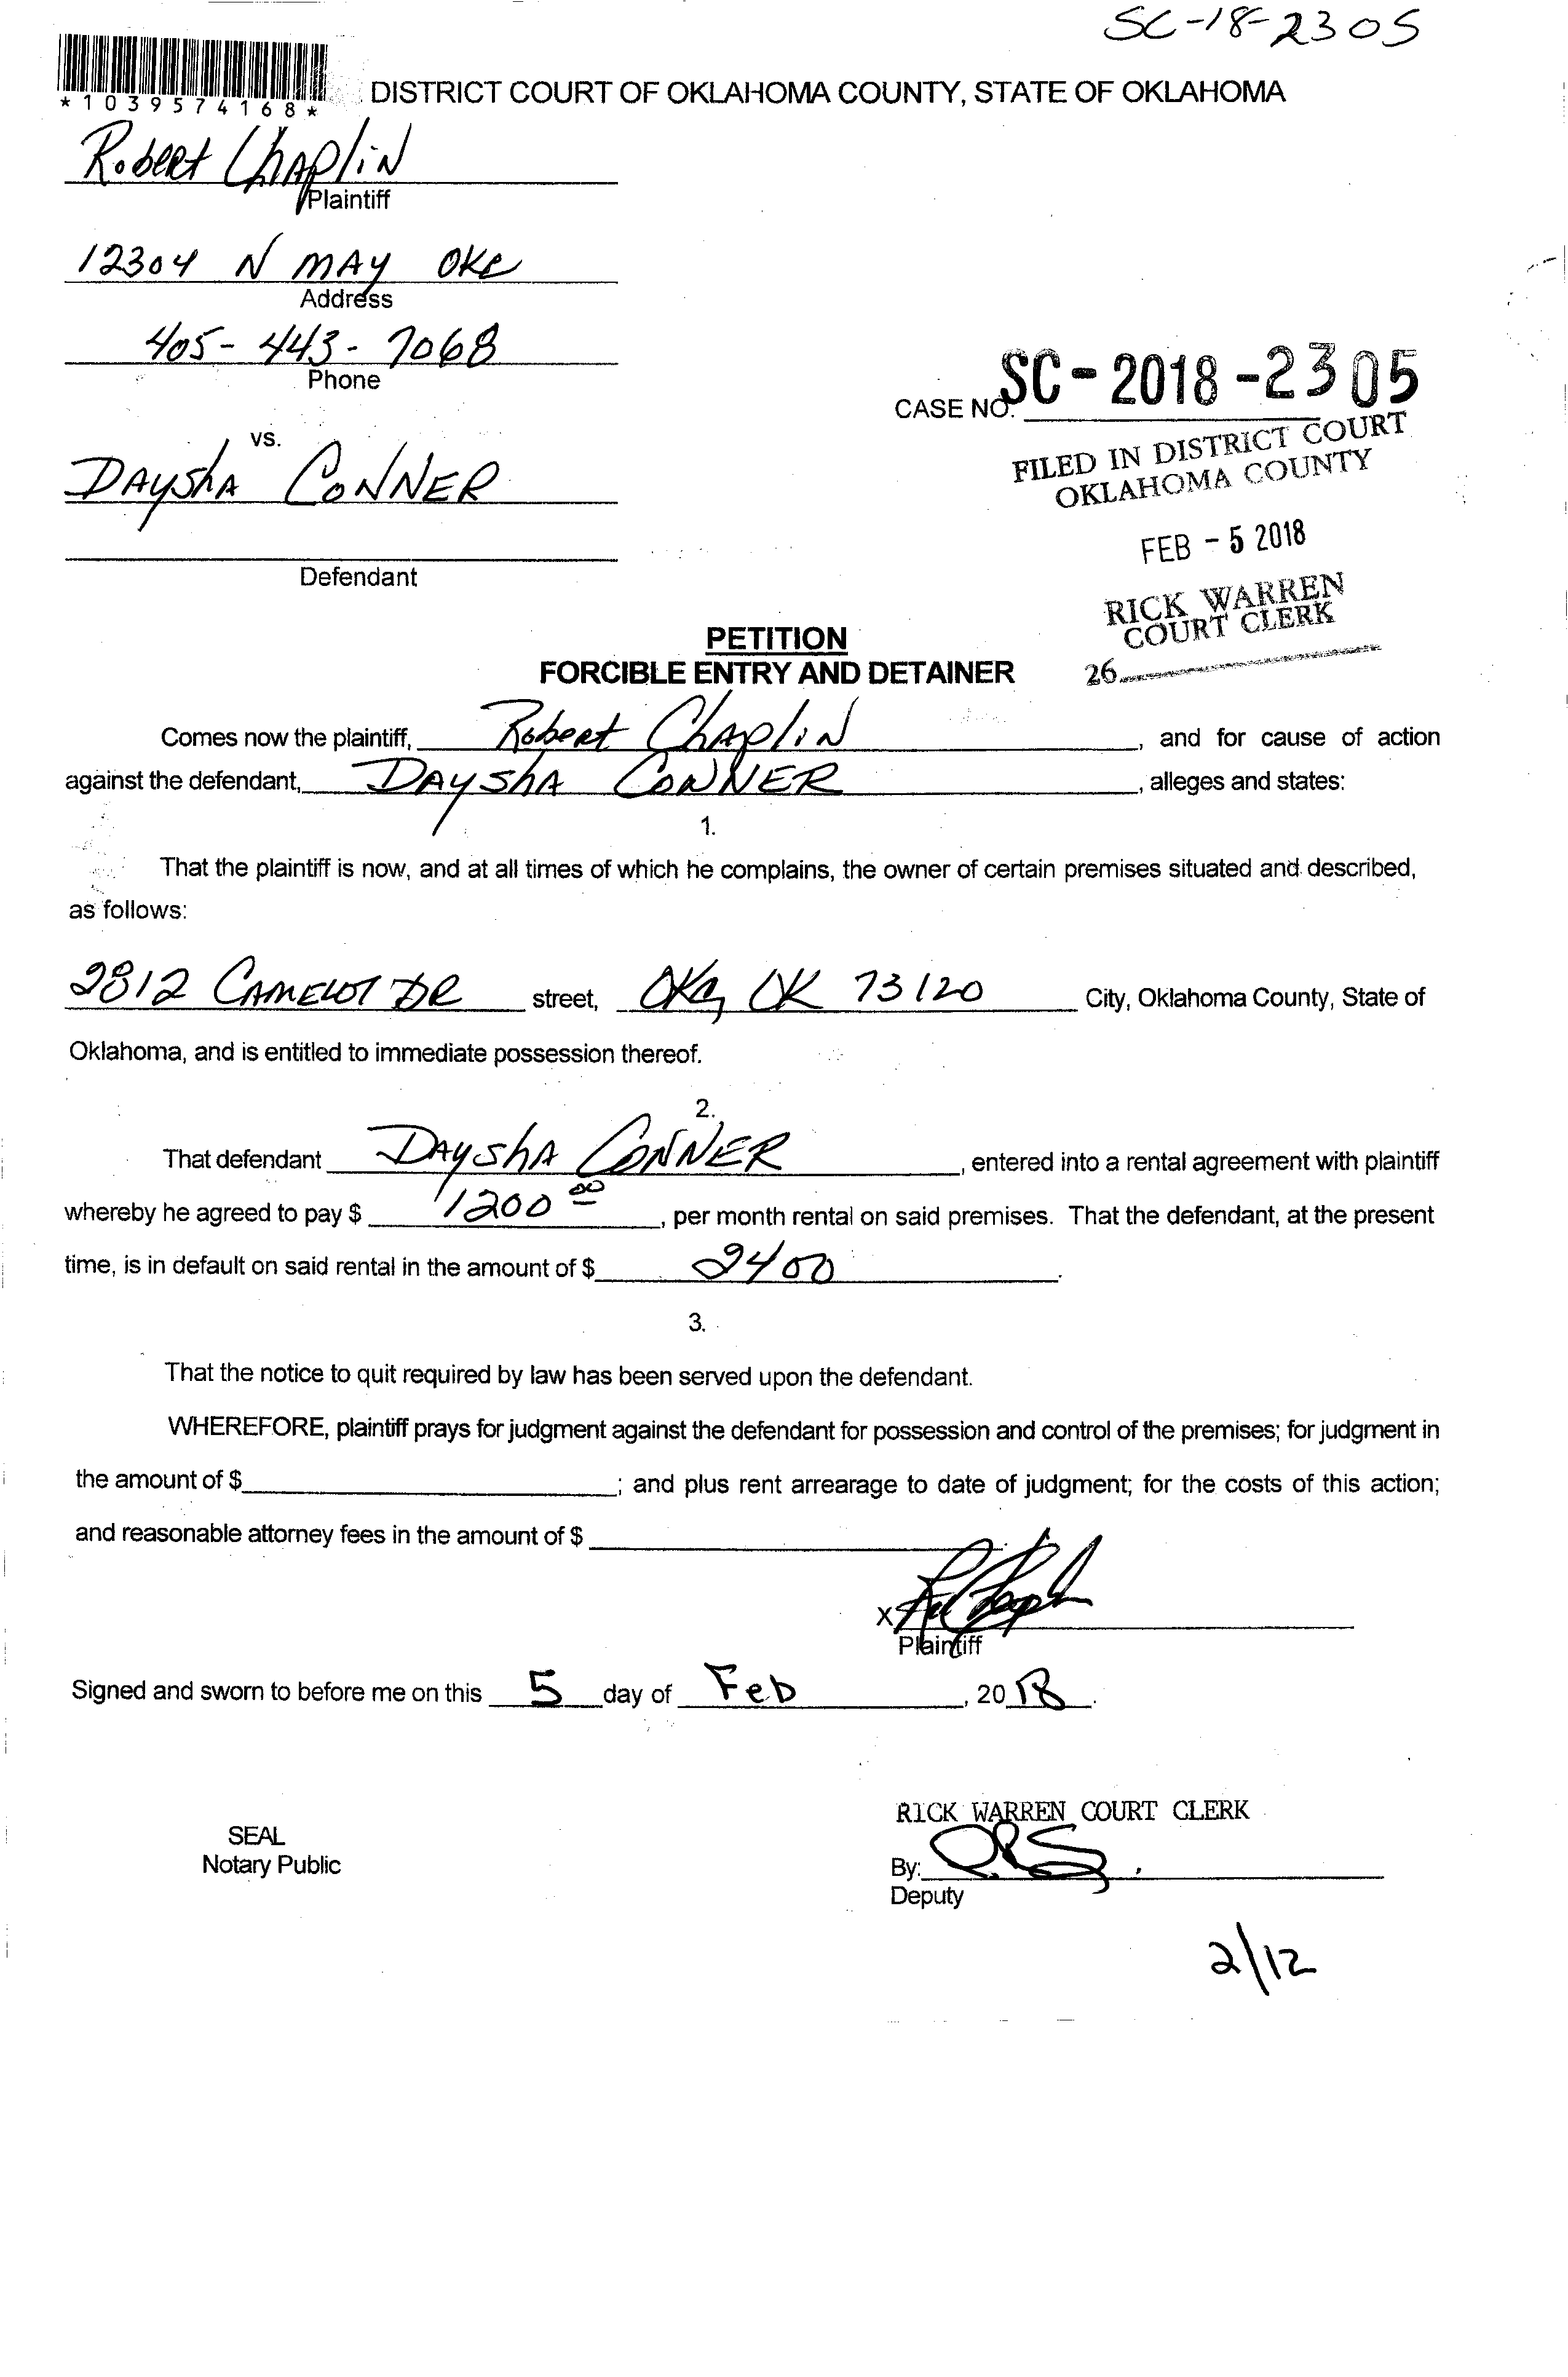 SC-18-2305
*1039574168*
DISTRICT COURT OF OKLAHOMA COUNTY, STATE OF OKLAHOMA
Robert Chaplin
Plaintiff
12304 N MAY OKC
Address
405-443-7068
Phone
CASE NO. SC-2018-2305
FILED IN DISTRICT COURT
OKLAHOMA COUNTY
vs.
DAYShA CONNER
FEB -5 2018
Defendant
RICK WARREN
COURT CLERK
26
PETITION
FORCIBLE ENTRY AND DETAINER
Comes now the plaintiff, Robert Chaplin, and for cause of action
against the defendant, DAYShA CONNER, alleges and states:
1.
That the plaintiff is now, and at all times of which he complains, the owner of certain premises situated and described,
as follows:
2812 CAMELOT DR street, OKC, OK 73120 City, Oklahoma County, State of
Oklahoma, and is entitled to immediate possession thereof.
2.
That defendant DAYShA CONNER, entered into a rental agreement with plaintiff
whereby he agreed to pay $ 1200 00, per month rental on said premises. That the defendant, at the present
time, is in default on said rental in the amount of $ 2400.
3.
That the notice to quit required by law has been served upon the defendant.
WHEREFORE, plaintiff prays for judgment against the defendant for possession and control of the premises; for judgment in
the amount of $ ; and plus rent arrearage to date of judgment; for the costs of this action;
and reasonable attorney fees in the amount of $ .
X
Plaintiff
Signed and sworn to before me on this 5 day of Feb, 2018.
RICK WARREN COURT CLERK
SEAL
Notary Public
By:
Deputy
2/12